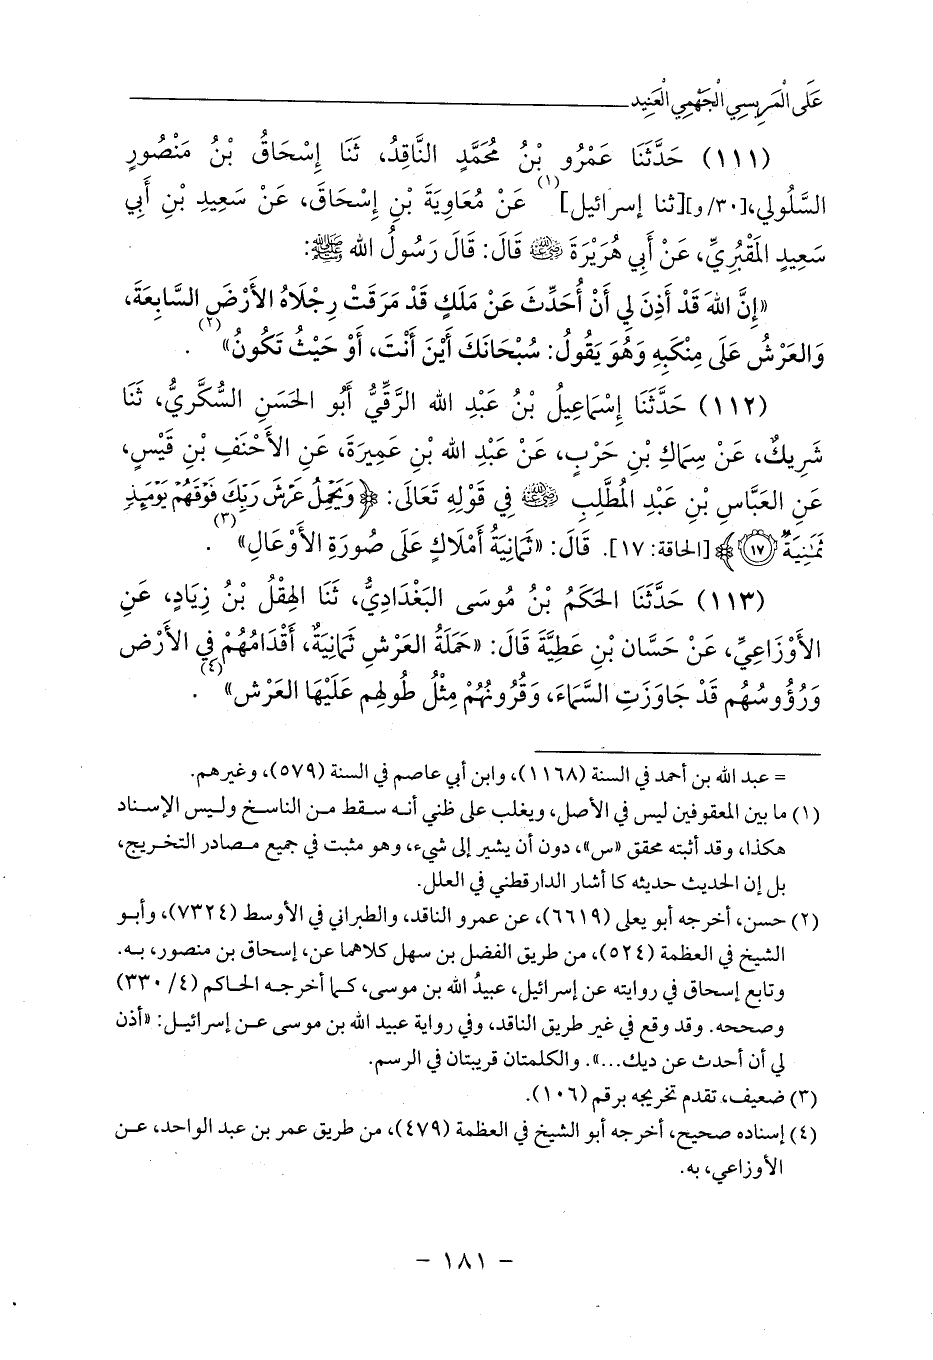 عَلَى الْمَرِيسِي الْجَهْمِي الْعَنِيد
(١١١) حَدَّثَنَا عَمْرُو بْنُ مُحَمَّدٍ النَّاقِدُ، ثَنَا إِسْحَاقُ بْنُ مَنْصُورٍ
السَّلُولي،[٣٠/و][ثنا إسرائيل](١) عَنْ مُعَاوِيَةَ بْنِ إِسْحَاقَ، عَنْ سَعِيدِ بْنِ أَبِي
سَعِيدٍ المَقْبُرِيِّ، عَنْ أَبِي هُرَيْرَةَ ﵁ قَالَ: قَالَ رَسُولُ الله ﷺ:
«إِنَّ اللهَ قَدْ أَذِنَ لِي أَنْ أُحَدِّثَ عَنْ مَلَكٍ قَدْ مَرَقَتْ رِجْلَاهُ الأَرْضَ السَّابِعَةَ،
وَالعَرْشُ عَلَى مِنْكَبِهِ وَهُوَ يَقُولُ: سُبْحَانَكَ أَيْنَ أَنْتَ، أَوْ حَيْثُ تَكُونُ»(٢).
(١١٢) حَدَّثَنَا إِسْمَاعِيلُ بْنُ عَبْدِ الله الرَّقِّيُّ أَبُو الحَسَنِ السُّكَّرِيُّ، ثَنَا
شَرِيكٌ، عَنْ سِمَاكِ بْنِ حَرْبٍ، عَنْ عَبْدِ الله بْنِ عَمِيرَةَ، عَنِ الأَحْنَفِ بْنِ قَيْسٍ،
عَنِ العَبَّاسِ بْنِ عَبْدِ المُطَّلِبِ ﵁ فِي قَوْلِهِ تَعَالَى: ﴿وَيَحْمِلُ عَرْشَ رَبِّكَ فَوْقَهُمْ يَوْمَئِذٍ
ثَمَٰنِيَةٌ ١٧﴾ [الحاقة: ١٧]. قَالَ: «ثَمَانِيَةُ أَمْلَاكٍ عَلَى صُورَةِ الأَوْعَالِ»(٣).
(١١٣) حَدَّثَنَا الحَكَمُ بْنُ مُوسَى البَغْدَادِيُّ، ثَنَا الهِقْلُ بْنُ زِيَادٍ، عَنِ
الأَوْزَاعِيِّ، عَنْ حَسَّان بْنِ عَطِيَّةَ قَالَ: «حَمَلَةُ العَرْشِ ثَمَانِيَةٌ، أَقْدَامُهُمْ فِي الأَرْض
وَرُؤُوسُهُم قَدْ جَاوَزَتِ السَّمَاءَ، وَقُرُونُهُمْ مِثْلُ طُولِهِم عَلَيْهَا العَرْش»(٤).
= عبد الله بن أحمد في السنة (١١٦٨)، وابن أبي عاصم في السنة (٥٧٩)، وغيرهم.
(١) ما بين المعقوفين ليس في الأصل، ويغلب على ظني أنه سقط من الناسخ وليس الإسناد
هكذا، وقد أثبته محقق «س»، دون أن يشير إلى شيء، وهو مثبت في جميع مصادر التخريج،
بل إن الحديث حديثه كما أشار الدارقطني في العلل.
(٢) حسن، أخرجه أبو يعلى (٦٦١٩)، عن عمرو الناقد، والطبراني في الأوسط (٧٣٢٤)، وأبو
الشيخ في العظمة (٥٢٤)، من طريق الفضل بن سهل كلاهما عن، إسحاق بن منصور، به.
وتابع إسحاق في روايته عن إسرائيل، عبيدُ الله بن موسى، كما أخرجه الحاكم (٤/ ٣٣٠)
وصححه. وقد وقع في غير طريق الناقد، وفي رواية عبيد الله بن موسى عن إسرائيل: «أذن
لي أن أحدث عن ديك...». والكلمتان قريبتان في الرسم.
(٣) ضعيف، تقدم تخريجه برقم (١٠٦).
(٤) إسناده صحيح، أخرجه أبو الشيخ في العظمة (٤٧٩)، من طريق عمر بن عبد الواحد، عن
الأوزاعي، به.
- ١٨١ -